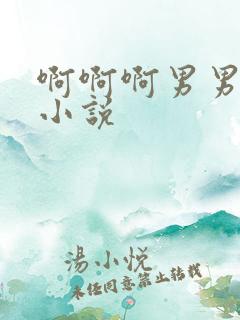 啊啊啊男男
小説
湯小悦
未经同意禁止转载